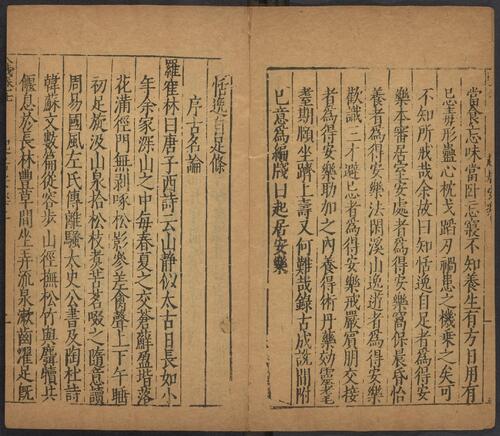 當食忘味當卧忘寢不知養生有方日用有
忌毒形蠱心枕戈蹈刃禍患之機乗之矣可
不知所戒哉余故曰知恬逸自足者爲得安
樂本審居室安處者爲得安樂窩保晨昏怡
養者爲得安樂法閑溪山逸遊者爲得安樂
歡識三才避忌者爲得安樂戒嚴賓朋交接
者爲得安樂助加之内養得術丹藥効靈耄
耋期頤坐躋上壽又何難哉錄古成說間附
已意爲編牋曰起居安樂
恬逸自足條
序古名論
羅寉林曰唐子西詩云山静似太古日長如小
年余家深山之中每春夏之交蒼蘚盈堦落
花滿徑門無剥啄松影參差禽聲上下午睡
初足旋汲山泉拾松枝煮苦茗啜之隨意讀
周易國風左氏傳離騷太史公書及陶杜詩
韓蘇文數篇從容步山徑撫松竹與麛犢共
偃息於長林豐草間坐弄流泉漱齒濯足旣